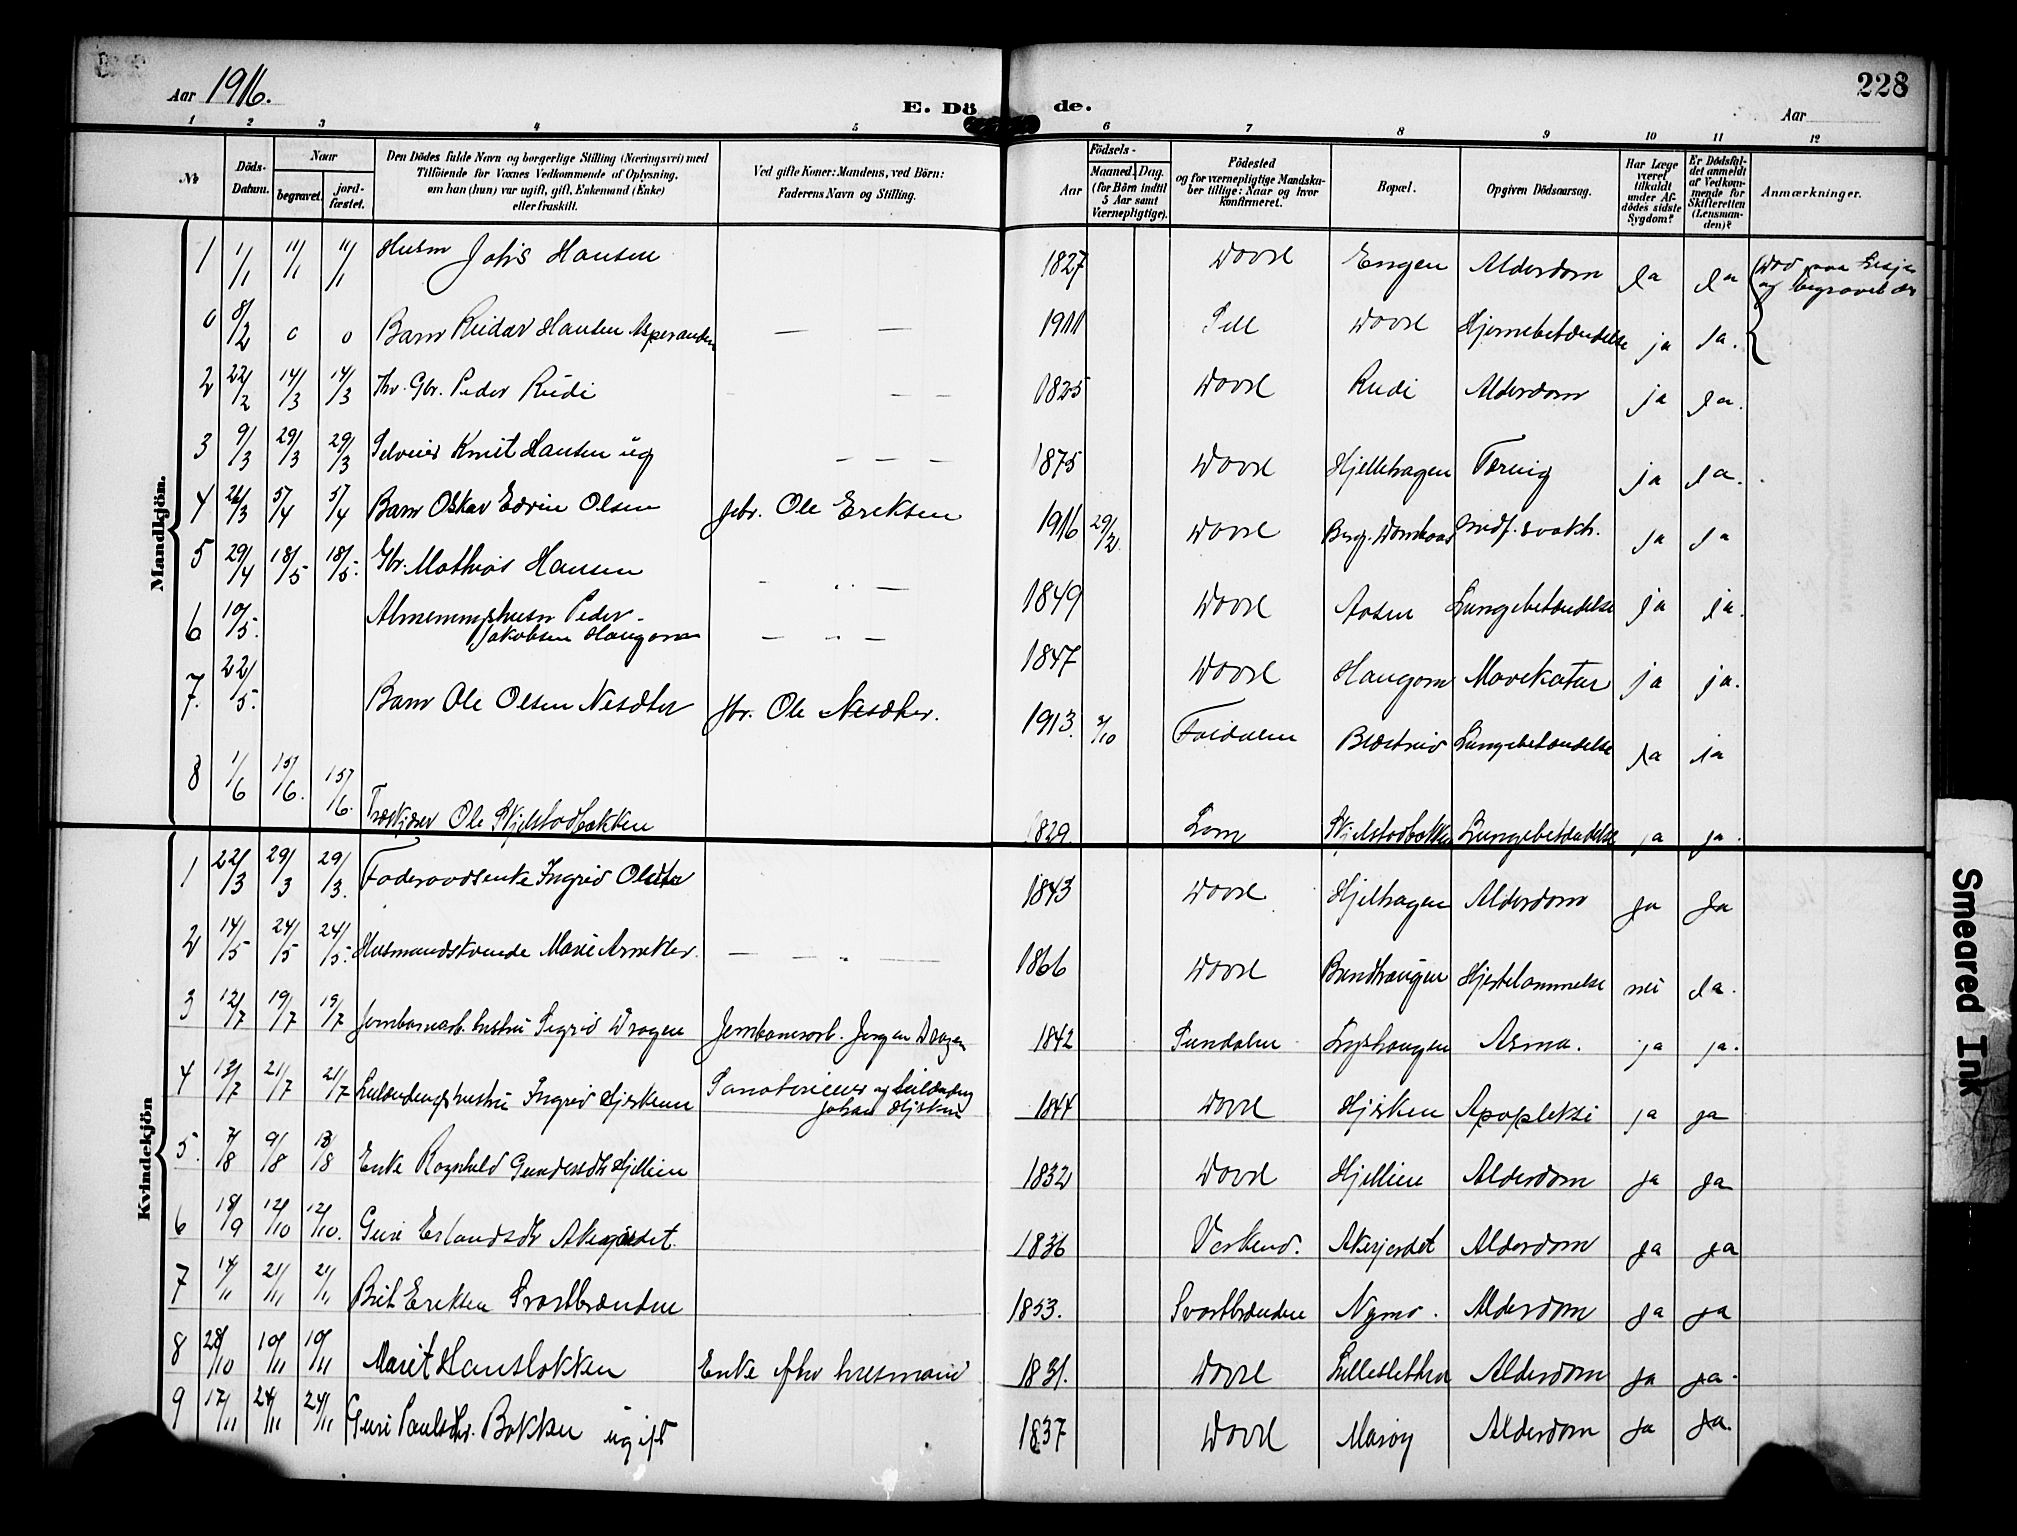 Aar 1916.
E. Döde.
Aar
228
1 2 3 4 5 6 7 8 9 10 11 12
No
Döds-Datum.
Naar
begravet.
jordfæstet.
Den Dödes fulde Navn og borgerlige Stilling (Næringsvei) med
Tilföiende for Voxnes Vedkommende af Oplysning,
om han (hun) var ugift, gift, Enkemand (Enke)
eller fraskilt.
Ved gifte Koner: Mandens, ved Börn:
Faderens Navn og Stilling.
Födsels-
Aar
Maaned. Dag.
(for Börn indtil
5 Aar samt
Værnepligtige).
Födested
og for værnepligtige Mandska-
ber tillige: Naar og hvor
konfirmeret.
Bopæl.
Opgiven Dödsaarsag.
Har Læge
været
tilkaldt
under Af-
dödes sidste
Sygdom?
Er Dödsfal-
det anmeldt
af Vedkom-
mende for
Skifteretten
(Lensman-
den)?
Anmærkninger.
Mandkjön.
1 1/1 11/1 11/1 Husm Johs Hansen 1827 Dovre Engen Alderdom Ja Ja og begravet der
0 8/2 0 0 Barn Reidar Hansen — — 1911 Sell Dovre Hjernebetændelse ja Ja.
2 22/2 14/3 14/3 Gbr. Peder Rudi — — 1825 Dovre Rudi Alderdom ja Ja.
3 9/3 29/3 29/3 Knut Hansen ug — — — 1875 Dovre Hjellehagen Tæring ja Ja.
4 26/3 5/4 5/4 Barn Oskar Edvin Olsen Gbr. Ole Eriksen 1916 29/2 Dovre Medf. svakh. Ja Ja
5 29/4 18/5 18/5. Gbr. Mathias Hansen 1849 Dovre Lungebetændelse ja ja.
6 10/5. Peder
Jakobsen Haugom — — 1847 Dovre Haugom Mavekatar ja ja.
7. 22/5. Barn Ole Olsen Nesæter Gbr. Ole Nesæter. 1913. 3/10 Foldalen Lungebetændelse Ja ja
8 1/6 15/6. 15/6. Ole Skjelstadbakken 1829. Lom Skjelstadbakken Lungebetændelse ja ja.
Kvindekjön
1 22/3 29/3 29/3. Foderaadsenke Ingrid Olsdtr 1843 Dovre Hjelhagen Alderdom Ja Ja
2 14/5 24/5 24/5. Husmandskvinde Mari — — 1866 Dovre Hjertelammelse nei Ja.
3 12/7 19/7 19/7 Jernbanearb. hustru Sigrid Dragen Jernbanearb. Jørgen Dragen 1842 Sundalen Asma. ja ja.
4 13/7 21/7 21/7 hustru Ingrid Hjerkinn
Johan Hjerkinn 1844 Dovre Hjerkin Apopleksi ja ja
5. 3/8 9/8 13/8 Enke Ragnhild Hjellien 1832 Dovre Hjellien Alderdom ja ja
6 18/9 12/10 12/10. Guri Erlandsdtr Akerjordet 1836 Akerjordet Alderdom ja ja
7 14/11 21/11 21/11 Brit Eriksen Svartbrænden 1853. Svartbrænden Nymo. Alderdom ja ja
8 28/10 10/11 10/11 Marit Hansløkken Enke efter husmand 1831. Dovre Alderdom ja ja.
9 17/11 24/11 24/11 Guri Paulsdtr. Bakken ugift 1837 Dovre Alderdom ja ja.
Smeared Ink